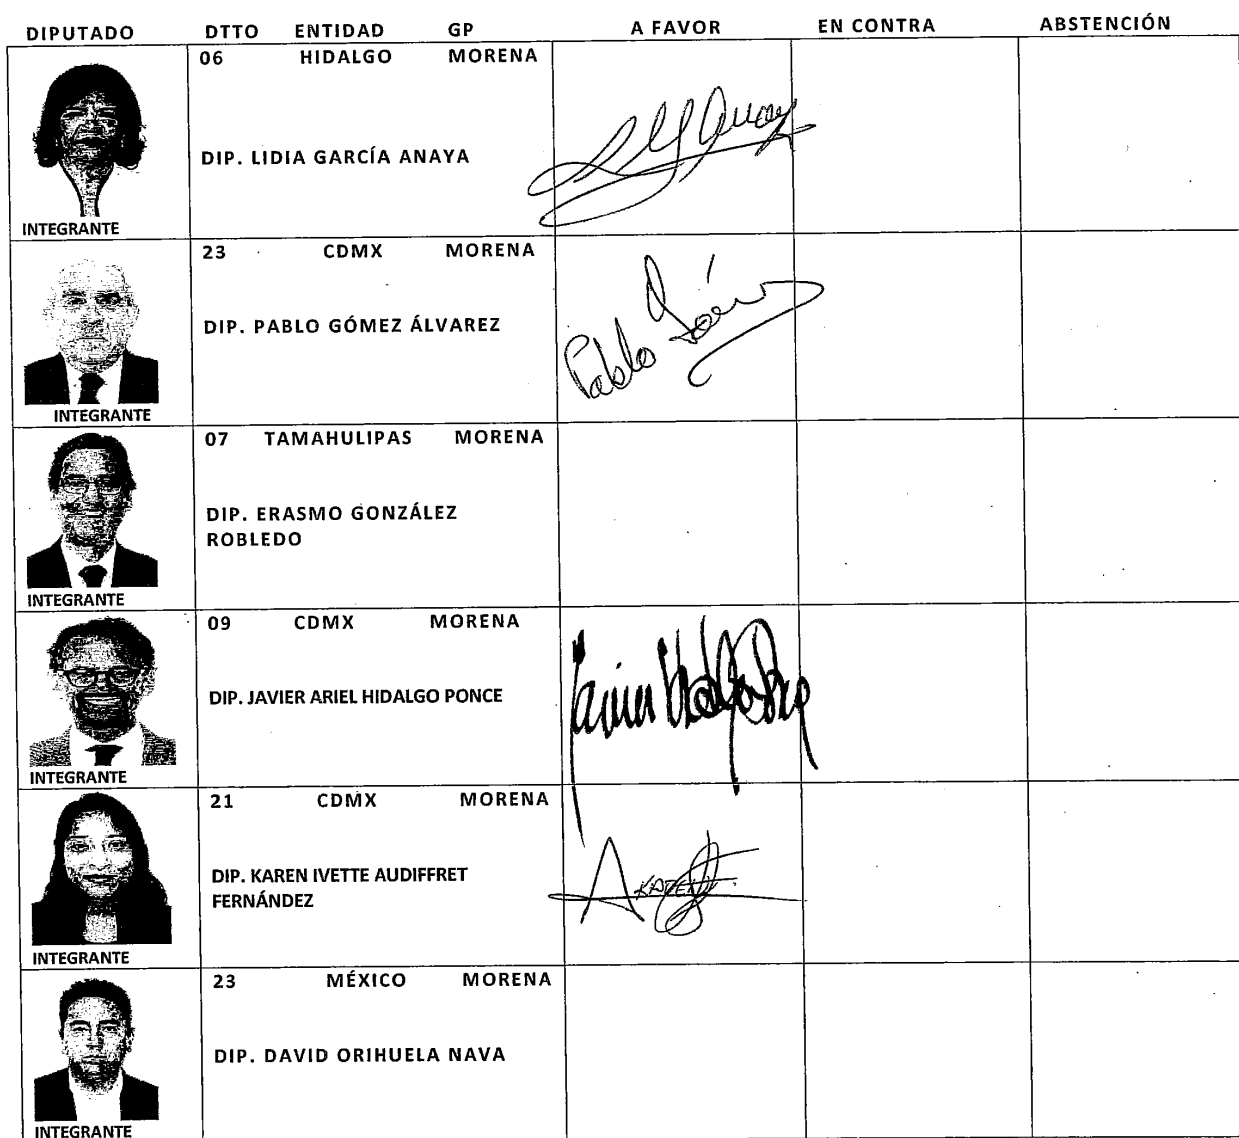 DIPUTADO DTTO ENTIDAD GP A FAVOR EN CONTRA ABSTENCIÓN
06 HIDALGO MORENA
DIP. LIDIA GARCÍA ANAYA
INTEGRANTE
23 CDMX MORENA
DIP. PABLO GÓMEZ ÁLVAREZ
Pablo
INTEGRANTE
07 TAMAHULIPAS MORENA
DIP. ERASMO GONZÁLEZ
ROBLEDO
INTEGRANTE
09 CDMX MORENA
DIP. JAVIER ARIEL HIDALGO PONCE
Javier Hidalgo Ponce
INTEGRANTE
21 CDMX MORENA
DIP. KAREN IVETTE AUDIFFRET
FERNÁNDEZ
KAREN
INTEGRANTE
23 MÉXICO MORENA
DIP. DAVID ORIHUELA NAVA
INTEGRANTE